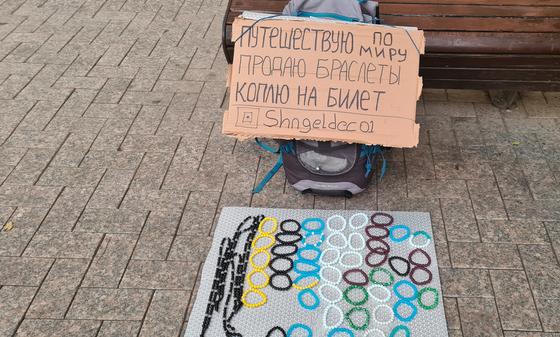 ПУТЕШЕСТВУЮ ПО МИРУ
ПРОДАЮ БРАСЛЕТЫ
КОПЛЮ НА БИЛЕТ
Shngeldec01